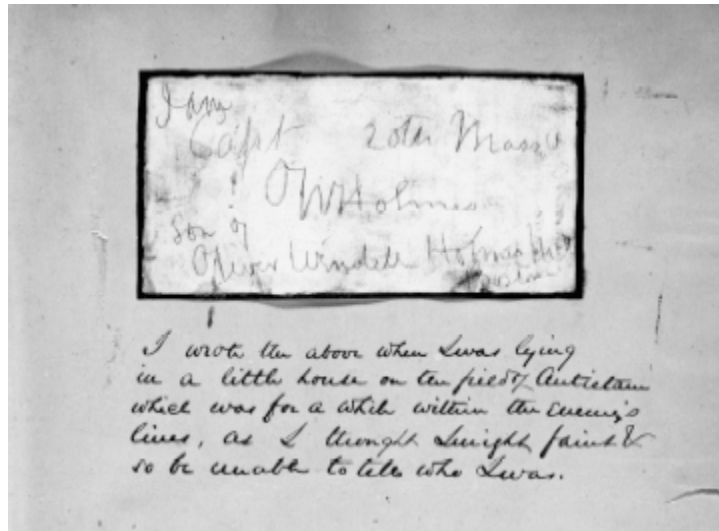 I am
Capt 20th Mass
O W Holmes
Son of
Oliver Wendell Holmes
Boston
I wrote the above when I was lying
in a little house on the field of Antietam
which was for a while within the enemy's
lines, as I thought I might faint &
so be unable to tell who I was.